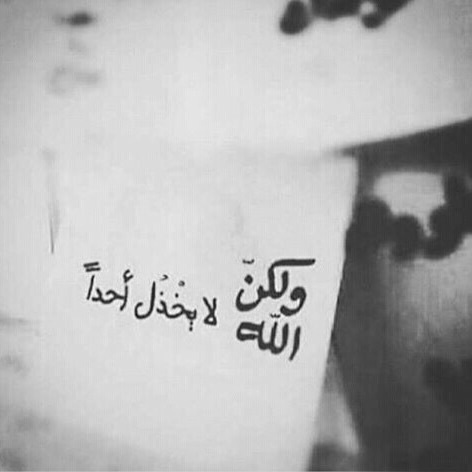 ولكنّ
الله
لا يخْذُل أحداً